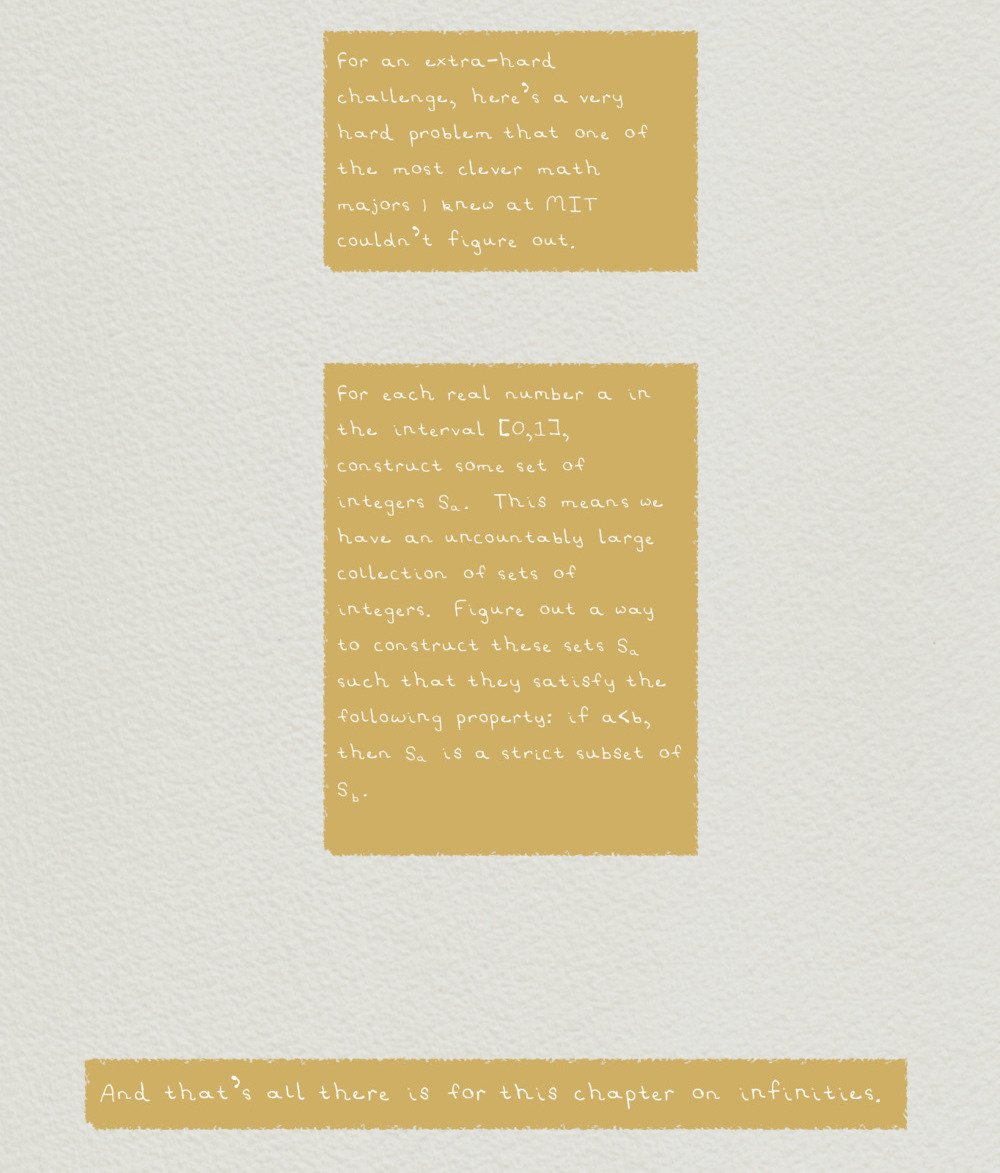 For an extra-hard
challenge, here's a very
hard problem that one of
the most clever math
majors I knew at MIT
couldn't figure out.
For each real number a in
the interval [0,1],
construct some set of
integers Sₐ. This means we
have an uncountably large
collection of sets of
integers. Figure out a way
to construct these sets Sₐ
such that they satisfy the
following property: if a<b,
then Sₐ is a strict subset of
S_b.
And that's all there is for this chapter on infinities.